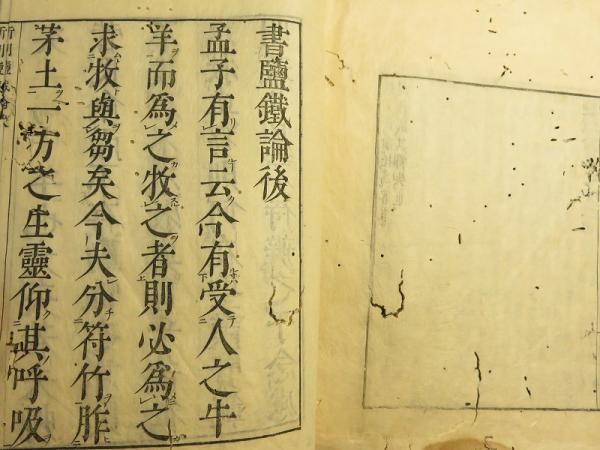 書鹽鐵論後
孟子有言云今有受人之牛
羊而為之牧之者則必為之
求牧與芻矣今夫分符竹胙
茅土一方之生靈仰其呼吸